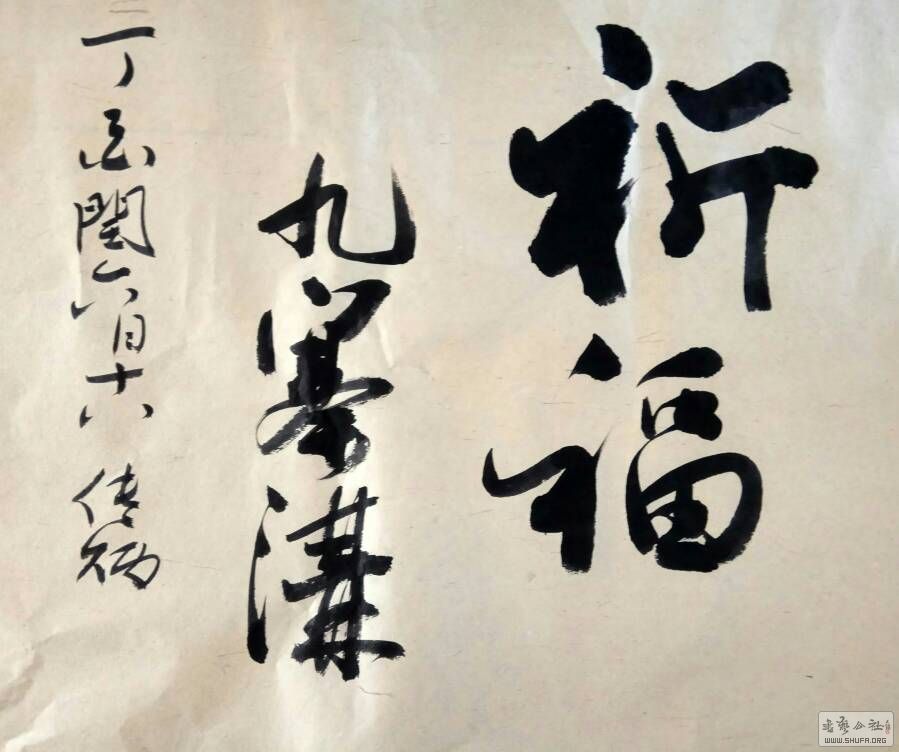 祈福
九寨溝
丁酉閏六月十八 传炳
WWW.SHUFA.ORG